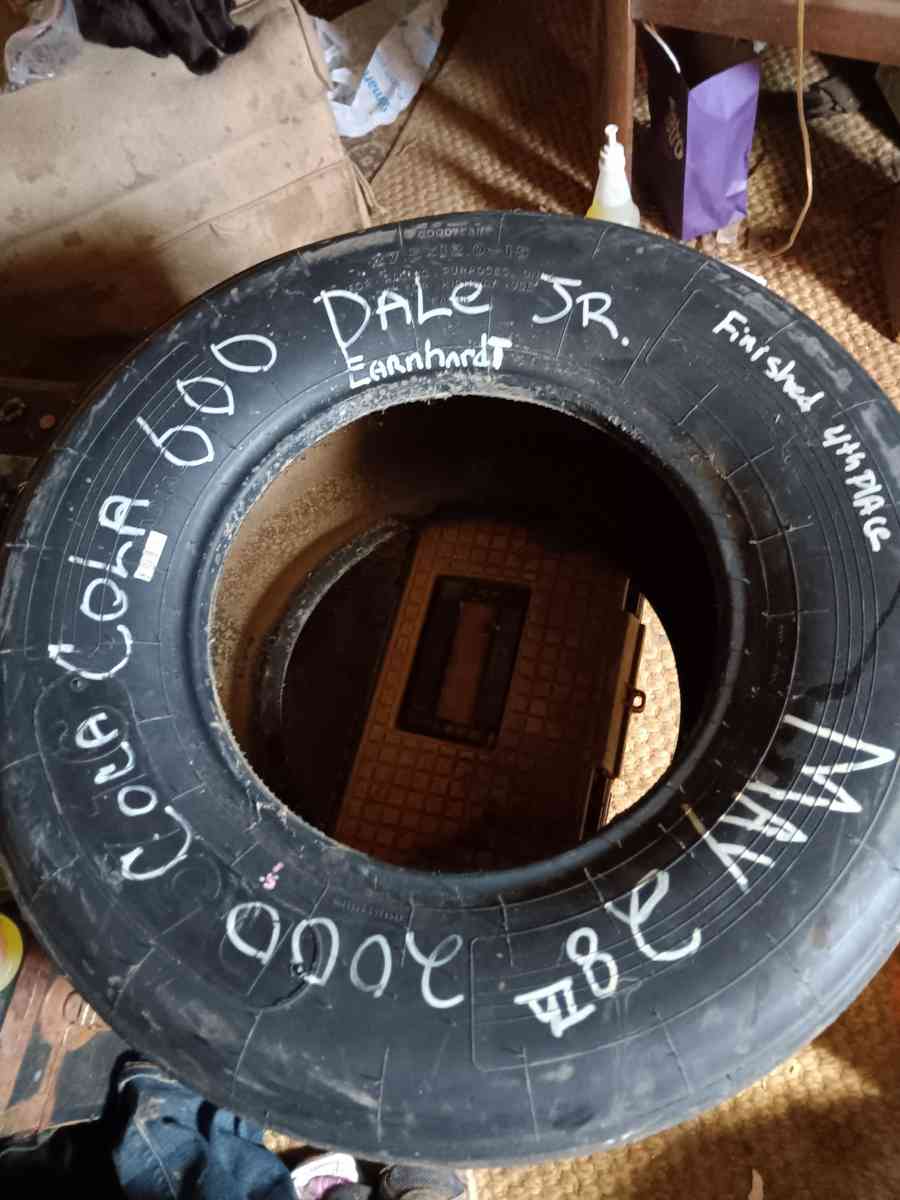 GOODYEAR
DALe JR.
EARnhardT
Finished 4th PlAce
MAY 28TH
2000
CocA ColA 600